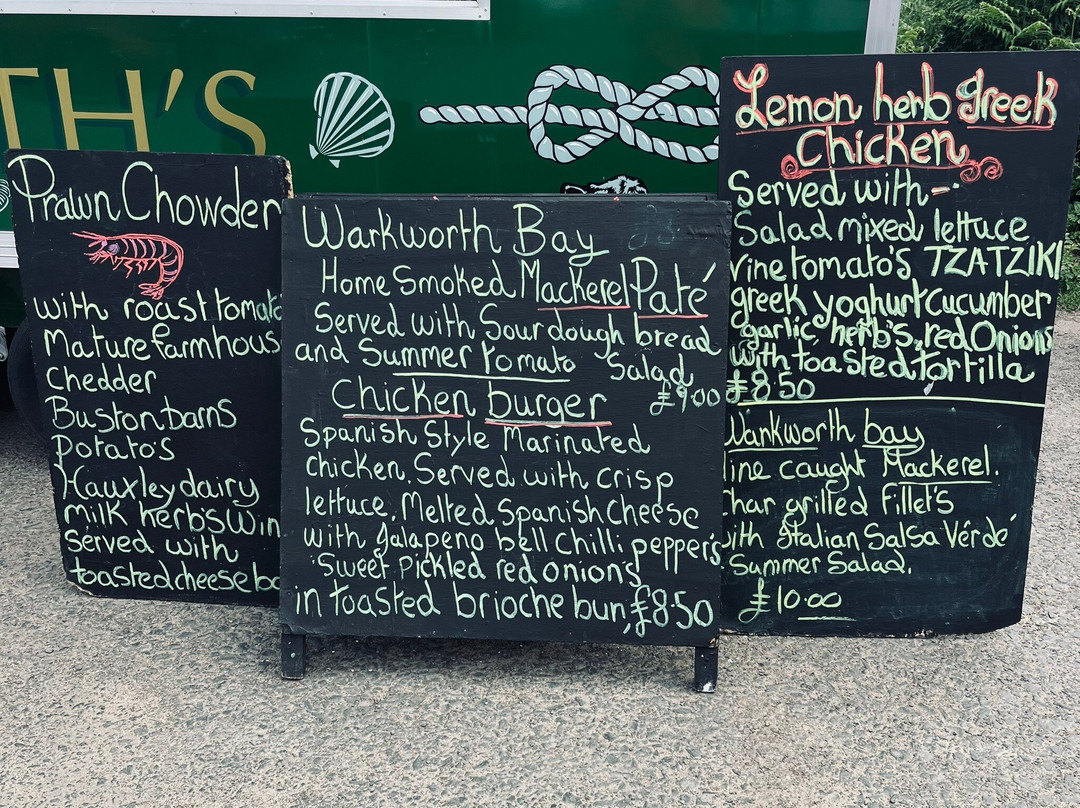 TH'S
Prawn Chowder
with roast tomato
Mature farmhous
Chedder
Buston barns
Potato's
Hauxley dairy
milk herb's Win
Served with
toasted cheese ba
Warkworth Bay
Home Smoked Mackerel Paté
Served with Sourdough bread
and Summer tomato Salad
£9.00
Chicken burger
Spanish Style Marinated
chicken. Served with crisp
lettuce. Melted Spanish Cheese
with Jalapeno bell chilli pepper's
Sweet Pickled red onion's
in toasted brioche bun, £8.50
Lemon herb Greek
Chicken
Served with -
Salad mixed lettuce
Vine tomato's TZATZIKI
greek yoghurt Cucumber
garlic, herb's, red Onions
With toasted tortilla
£8.50
Warkworth bay
line caught Mackerel.
Char grilled Fillet's
with Italian Salsa Vérdé
Summer Salad.
£10.00